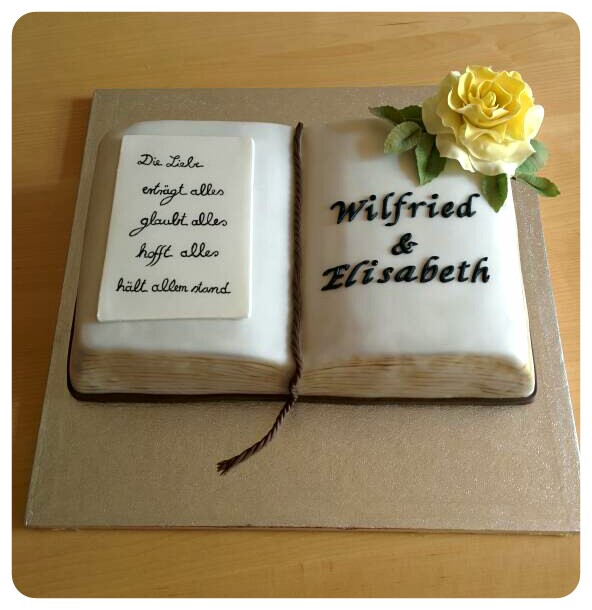 Die Liebe
erträgt alles
glaubt alles
hofft alles
hält allem stand
Wilfried
&
Elisabeth